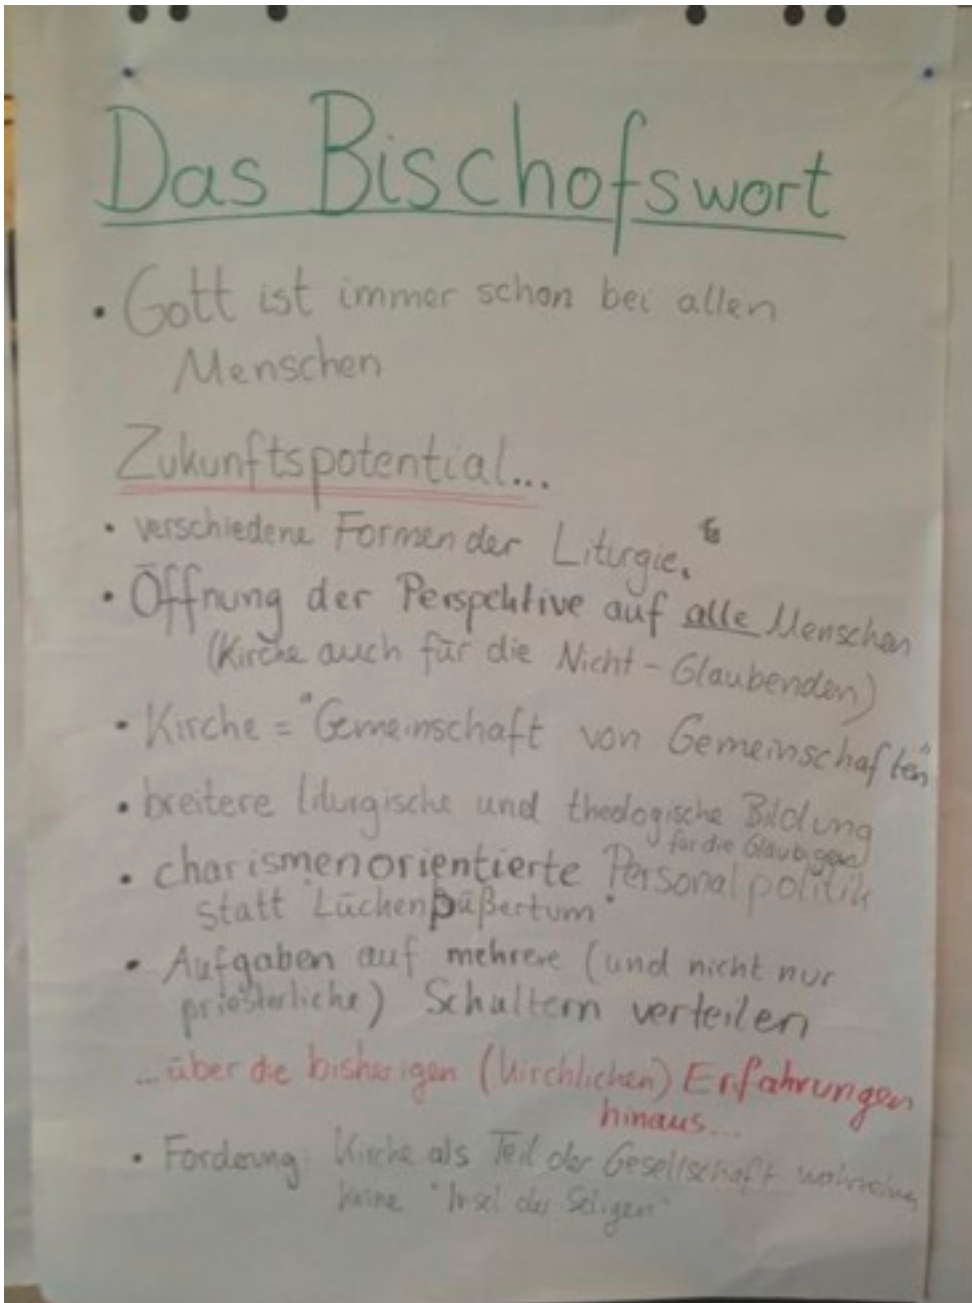 Das Bischofswort
• Gott ist immer schon bei allen
Menschen
Zukunftspotential...
• verschiedene Formen der Liturgie.
• Öffnung der Perspektive auf alle Menschen
(Kirche auch für die Nicht-Glaubenden)
• Kirche = "Gemeinschaft von Gemeinschaften"
• breitere liturgische und theologische Bildung
für die Gläubigen
• charismenorientierte Personalpolitik
statt "Lückenbüßertum"
• Aufgaben auf mehrere (und nicht nur
priesterliche) Schultern verteilen
...über die bisherigen (kirchlichen) Erfahrungen
hinaus...
• Forderung: Kirche als Teil der Gesellschaft
keine "Insel der Seligen"